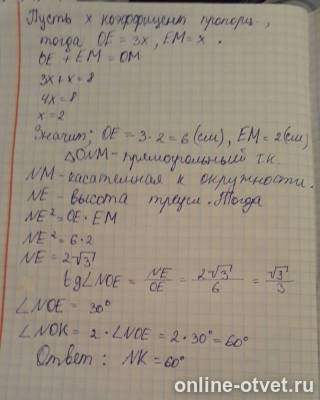 Пусть x коэффицент пропорц.,
тогда OE = 3x, EM = x.
OE + EM = OM
3x + x = 8
4x = 8
x = 2
Значит; OE = 3·2 = 6 (см), EM = 2 (см)
△ONM - прямоугольный т.к.
NM - касательная к окружности.
NE - высота треугл. Тогда
NE² = OE · EM
NE² = 6·2
NE = 2√3
tg∠NOE = NE/OE = 2√3/6 = √3/3
∠NOE = 30°
∠NOK = 2·∠NOE = 2·30° = 60°
Ответ: NK = 60°
online-otvet.ru